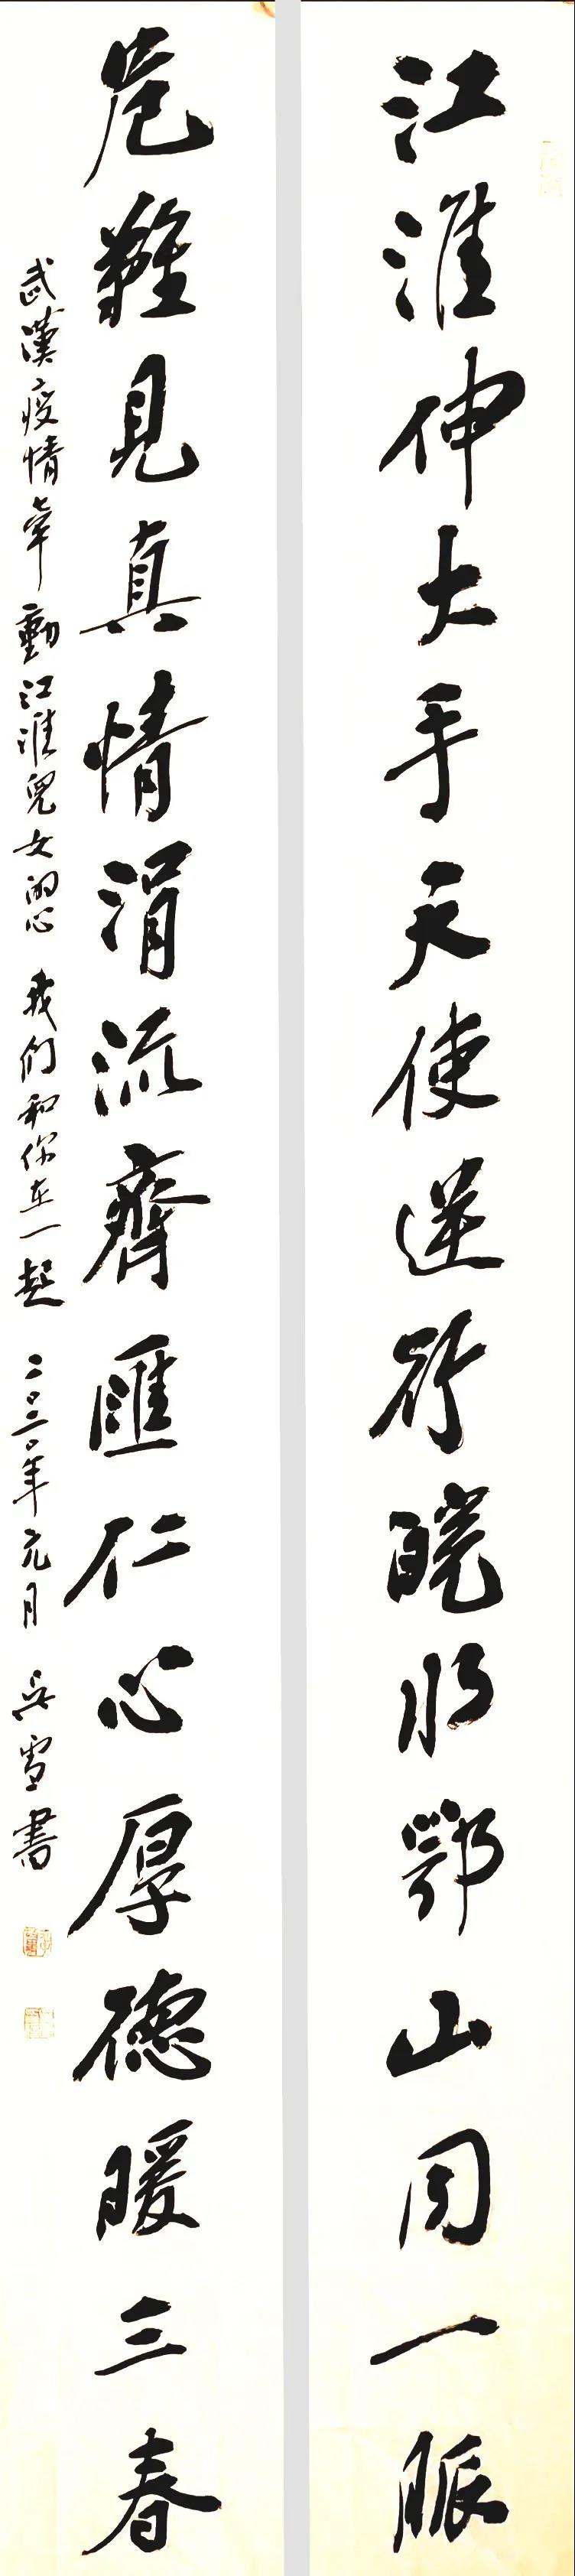 江淮伸大手天使逆行皖水鄂山同一脈
危難見真情涓流齊匯仁心厚德暖三春
武漢疫情牽動江淮兒女的心 我们和你在一起 二〇二〇年元月 吳雪書